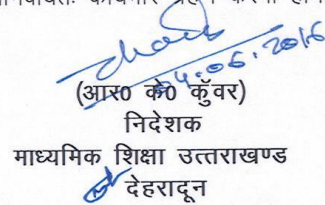 04.06.2016
(आर0 के0 कुॅवर)
निदेशक
माध्यमिक शिक्षा उत्तराखण्ड
देहरादून